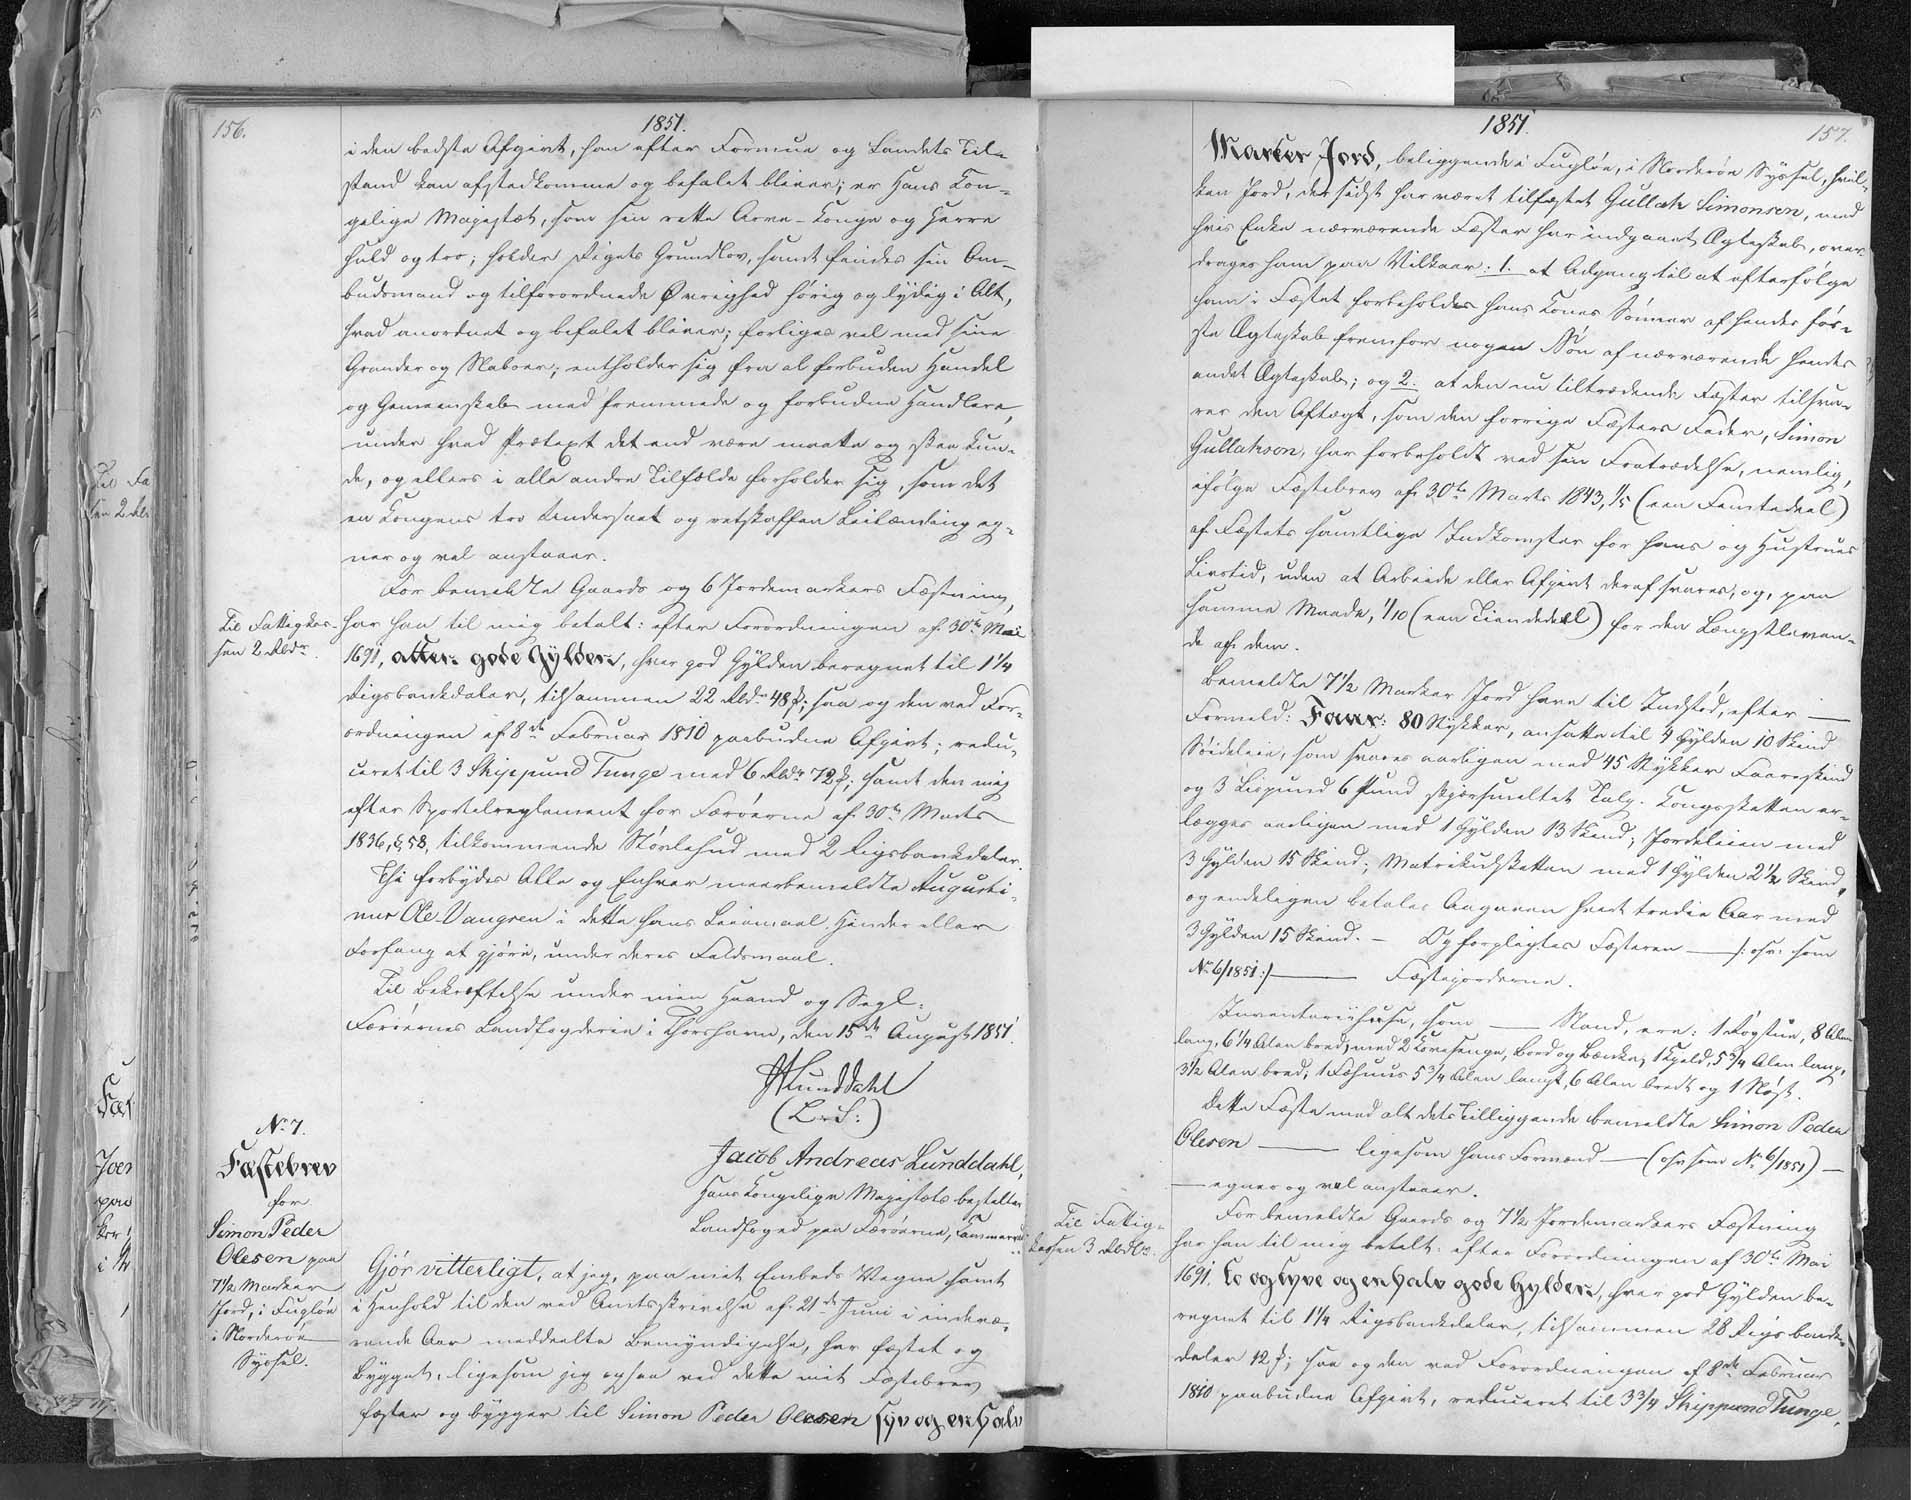 156.
1851.
i den bedste Afgivt, han efter Formue og Landets Til-
stand kan afstedkomme og befalet bliver; er Hans Kon-
gelige Majestæt, som sin rette Arve-Konge og Herre
huld og tro; holder Rigets Grundlov, samt findes sin Om-
budsmand og tilforordnede Øvrighed hørig og lydig i Alt,
hvad anordnet og befalet bliver; forliges vel med sine
Grander og Naboer; entholder sig fra al forbuden Handel
og Gemeenskab med fremmede og forbudne Handlere,
under hvad Prætext det end være maatte og skee kun-
de, og ellers i alle andre Tilfælde forholder sig, som det
en Kongens tro Undersaat og retskaffen Leilænding eg-
ner og vel anstaaer.
For bemeldte Gaards og 6 Jordemarkers Fæstning,
Til Fattigkas-
sen 2 Rbdr.
har han til mig betalt: efter Forordningen af 30te Mai
1691, atten gode Gylden, hver god Gylden beregnet til 1 1/4
Rigsbankdaler, tilsammen 22 Rbdr 48 ß; saa og den ved For-
ordningen af 8de Februar 1810 paabudne Afgivt; redu-
ceret til 3 Skippund Tunge med 6 Rbdr 72 ß; samt den mig
efter Sportelreglement for Færøerne af 30te Marts
1836, § 58, tilkommende Størlehud med 2 Rigsbankdaler.
Thi forbydes Alle og Enhver meerbemeldte Augusti-
nus Ole Vangren i dette hans Leiemaal Hinder eller
Forfang at gjøre, under deres Faldsmaal.
Til Bekræftelse under min Haand og Segl.
Færøernes Landfogderie i Thorshavn, den 15de August 1851.
Lunddahl
(L. S.)
No 7.
Fæstebrev
for
Simon Peder
Olesen paa
7 1/2 Marker
Jord, i Fugløe
i Norderøe
Syssel.
Jacob Andreas Lunddahl,
Hans Kongelige Majestæts bestalter
Landfoged paa Færøerne,
Gjør vitterligt, at jeg, paa mit Embeds Vegne samt
i Henhold til den ved Amtsskrivelse af 21de Juni i indevæ-
rende Aar meddeelte Bemyndigelse, har fæstet og
bygget, ligesom jeg ogsaa ved dette mit Fæstebrev
fæster og bygger til Simon Peder Olesen syv og en halv
1851.
157.
Marker Jord, beliggende i Fugløe, i Norderøe Syssel, hvil-
ken Jord, der sidst har været tilfæstet Gullak Simonsen, med
hvis Enke nærværende Fæster har indgaaet Ægteskab, over-
drages ham paa Vilkaar: 1. at Adgang til at efterfølge
ham i Fæstet forbeholdes hans Kones Sønner af hendes før-
ste Ægteskab fremfor nogen Søn af nærværende hendes
andet Ægteskab; og 2. at den nu tiltrædende Fæster tilsva-
rer den Aftægt, som den forrige Fæsters Fader, Simon
Gullaksen, har forbeholdt ved sin Fratrædelse, nemlig,
ifølge Fæstebrev af 30te Marts 1843, 1/5 (een Femtedeel)
af Fæstets samtlige Indkomster for hans og Hustrues
Livstid, uden at Arbeide eller Afgivt deraf svares, og, paa
samme Maade, 1/10 (een Tiendedeel) for den Længstleven-
de af dem.
Bemeldte 7 1/2 Marker Jord have til Indstød, efter —
Formeld: Faar: 80 Stykker, ansatte til 4 Gylden 10 Skind
Søideleie, som svares aarligen med 45 Stykker Faareskind
og 3 Lispund 6 Pund skjærsmeltet Talg. Kongsskatten er-
lægges aarligen med 1 Gylden 13 Skind; Jordeleien med
3 Gylden 15 Skind; Matrikulskatten med 1 Gylden 2 1/2 Skind,
og endeligen betales Aagaven hvert tredie Aar med
3 Gylden 15 Skind. — Og forpligtes Fæsteren — /: ofv: som
No 6/1851 :/ — Fæstejorderne.
Inventariihuse, som — Stand, ere: 1 Røgstue, 8 Alen
lang, 6 1/4 Alen bred, med 2 Kovesenge, Bord og Bænke, 1 Hjeld, 5 3/4 Alen lang,
3 1/2 Alen bred; 1 Fæhuus 5 3/4 Alen langt, 6 Alen bredt og 1 Nøst.
Dette Fæste med alt dets Tilliggende bemeldte Simon Peder
Olesen — ligesom hans Formænd — (ofv: som No 6/1851) —
— egner og vel anstaaer.
For bemeldte Gaards og 7 1/2 Jordemarkers Fæstning
Til Fattig-
kassen 3 Rbdlr.
har han til mig betalt: efter Forordningen af 30te Mai
1691, To og tyve og en halv gode Gylden, hver god Gylden be-
regnet til 1 1/4 Rigsbankdaler, tilsammen 28 Rigsbank-
daler 12 ß; saa og den ved Forordningen af 8de Februar
1810 paabudne Afgivt, reduceret til 3 3/4 Skippund Tunge,